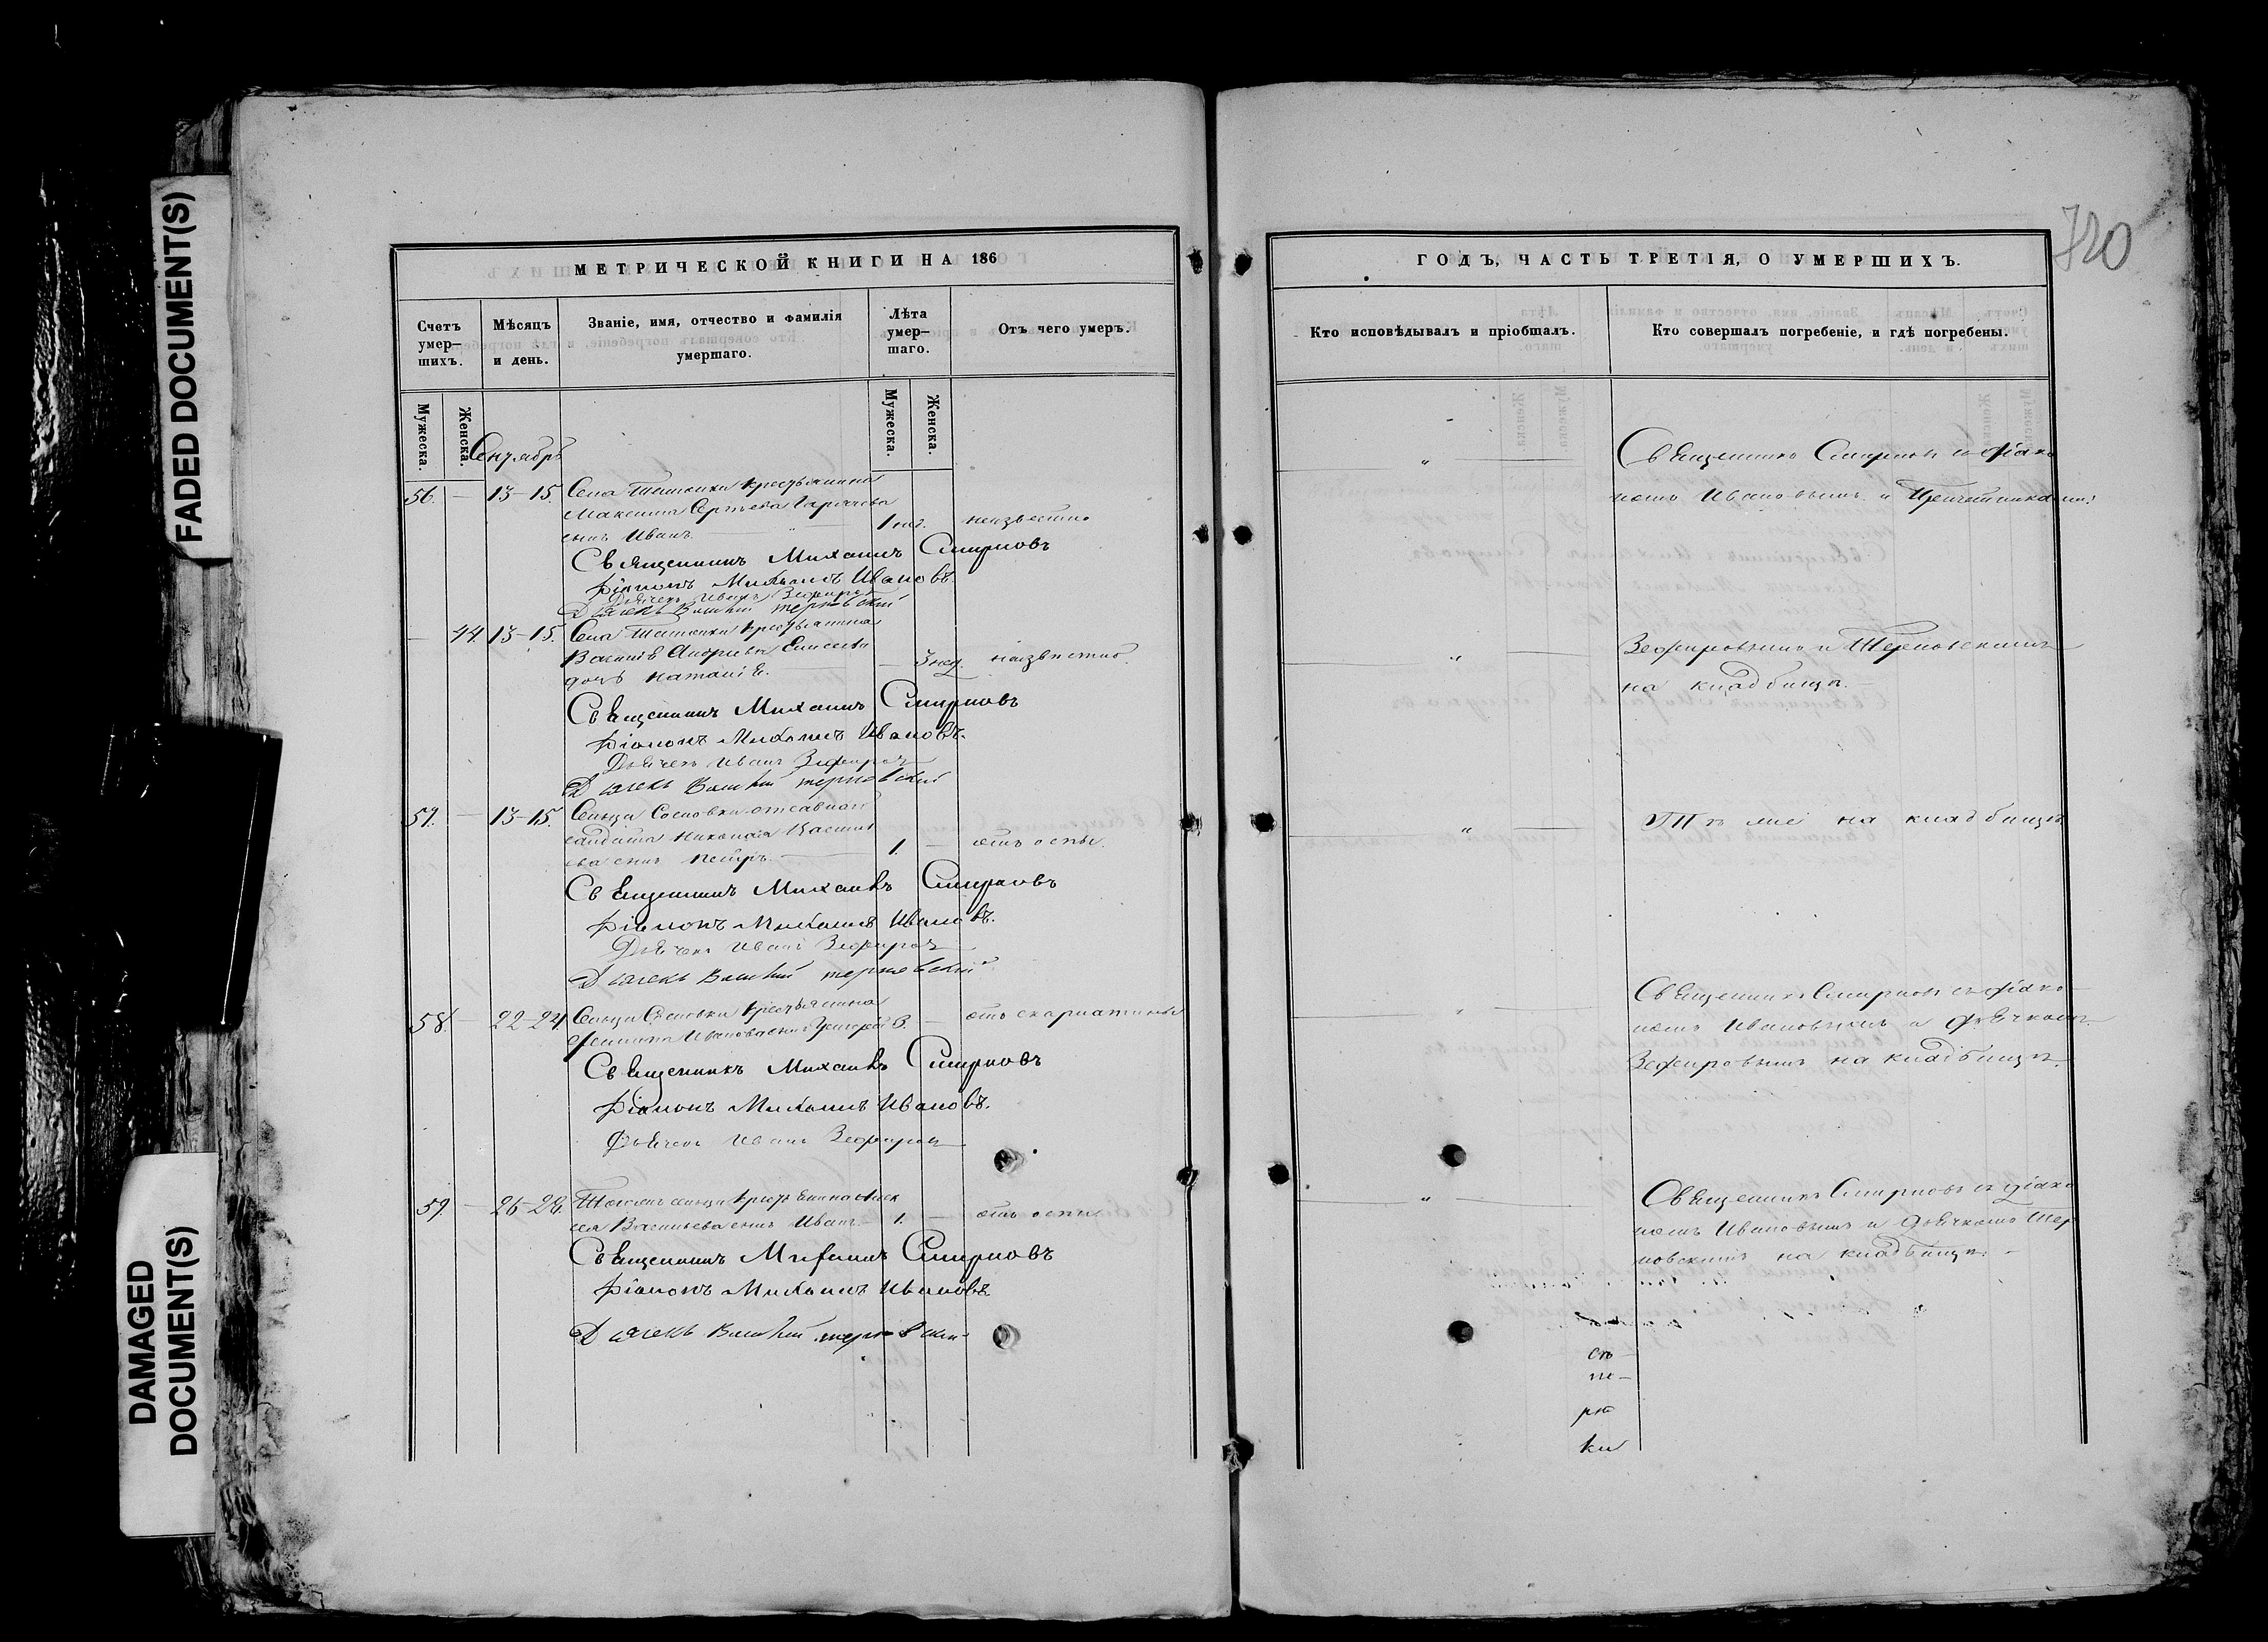 FADED DOCUMENT(S)
DAMAGED
DOCUMENT(S)
МЕТРИЧЕСКОЙ КНИГИ НА 186
Счетъ
умер-
шихъ.
Мѣсяцъ
и день.
Званіе, имя, отчество и фамилія
умершаго.
Лѣта
умер-
шаго.
Отъ чего умеръ.
Мужеска.
Женска.
Мужеска.
Женска.
Сентябрь
56. — 13-15. Села крестьянина
Максима Сергѣева
сынъ Иванъ 1 неизвѣстно
Священникъ Михаилъ Смирновъ
Діаконъ Михаилъ Ивановъ.
Дьячекъ Иванъ Зефировъ
Дьячекъ Терновскій
— 44. 13-15. Села крестьянина
Андреева Елисеева
дочь Наталія. — 3 нед. неизвѣстно.
Священникъ Михаилъ Смирновъ
Діаконъ Михаилъ Ивановъ.
Дьячекъ Иванъ Зефировъ
Дьячекъ Терновскій
57. — 13-15. Сельца Сосновки отставнаго
солдата Николая Василь
ева сынъ Петръ. 1. — отъ оспы.
Священникъ Михаилъ Смирновъ
Діаконъ Михаилъ Ивановъ.
Дьячекъ Иванъ Зефировъ
Дьячекъ Терновскій
58. — 22-24 Сельца Сосновки крестьянина
Иванова сынъ Григорій 3. — отъ скарлатины
Священникъ Михаилъ Смирновъ
Діаконъ Михаилъ Ивановъ.
Дьячекъ Иванъ Зефировъ
59. — 26-28. сельца крестьянина Алек
сея Васильева сынъ Иванъ 1. — отъ оспы
Священникъ Михаилъ Смирновъ
Діаконъ Михаилъ Ивановъ
Дьячекъ
720
ГОДЪ, ЧАСТЬ ТРЕТІЯ, О УМЕРШИХЪ.
Кто исповѣдывалъ и пріобщалъ.
Кто совершалъ погребеніе, и гдѣ погребены.
Священникъ Смирновъ съ діако
номъ Ивановымъ и Причетниками:
Зефировымъ и Терновскимъ
на кладбищѣ.
Тѣ же на кладбищѣ
Священникъ Смирновъ съ діако-
номъ Ивановымъ и дьячкомъ
Зефировымъ на кладбищѣ.
Священникъ Смирновъ съ діако
номъ Ивановымъ и дьячкомъ Тер
новскимъ на кладбищѣ. -
съ
пе-
рю
ки